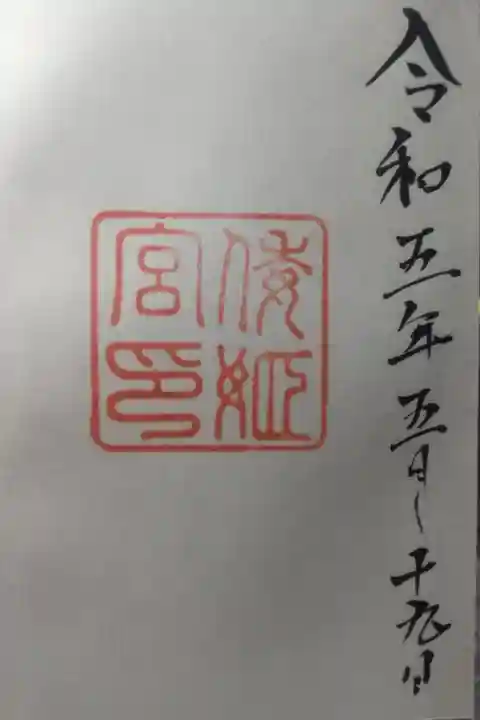 令和五年五月十九日
倭姫
宮印